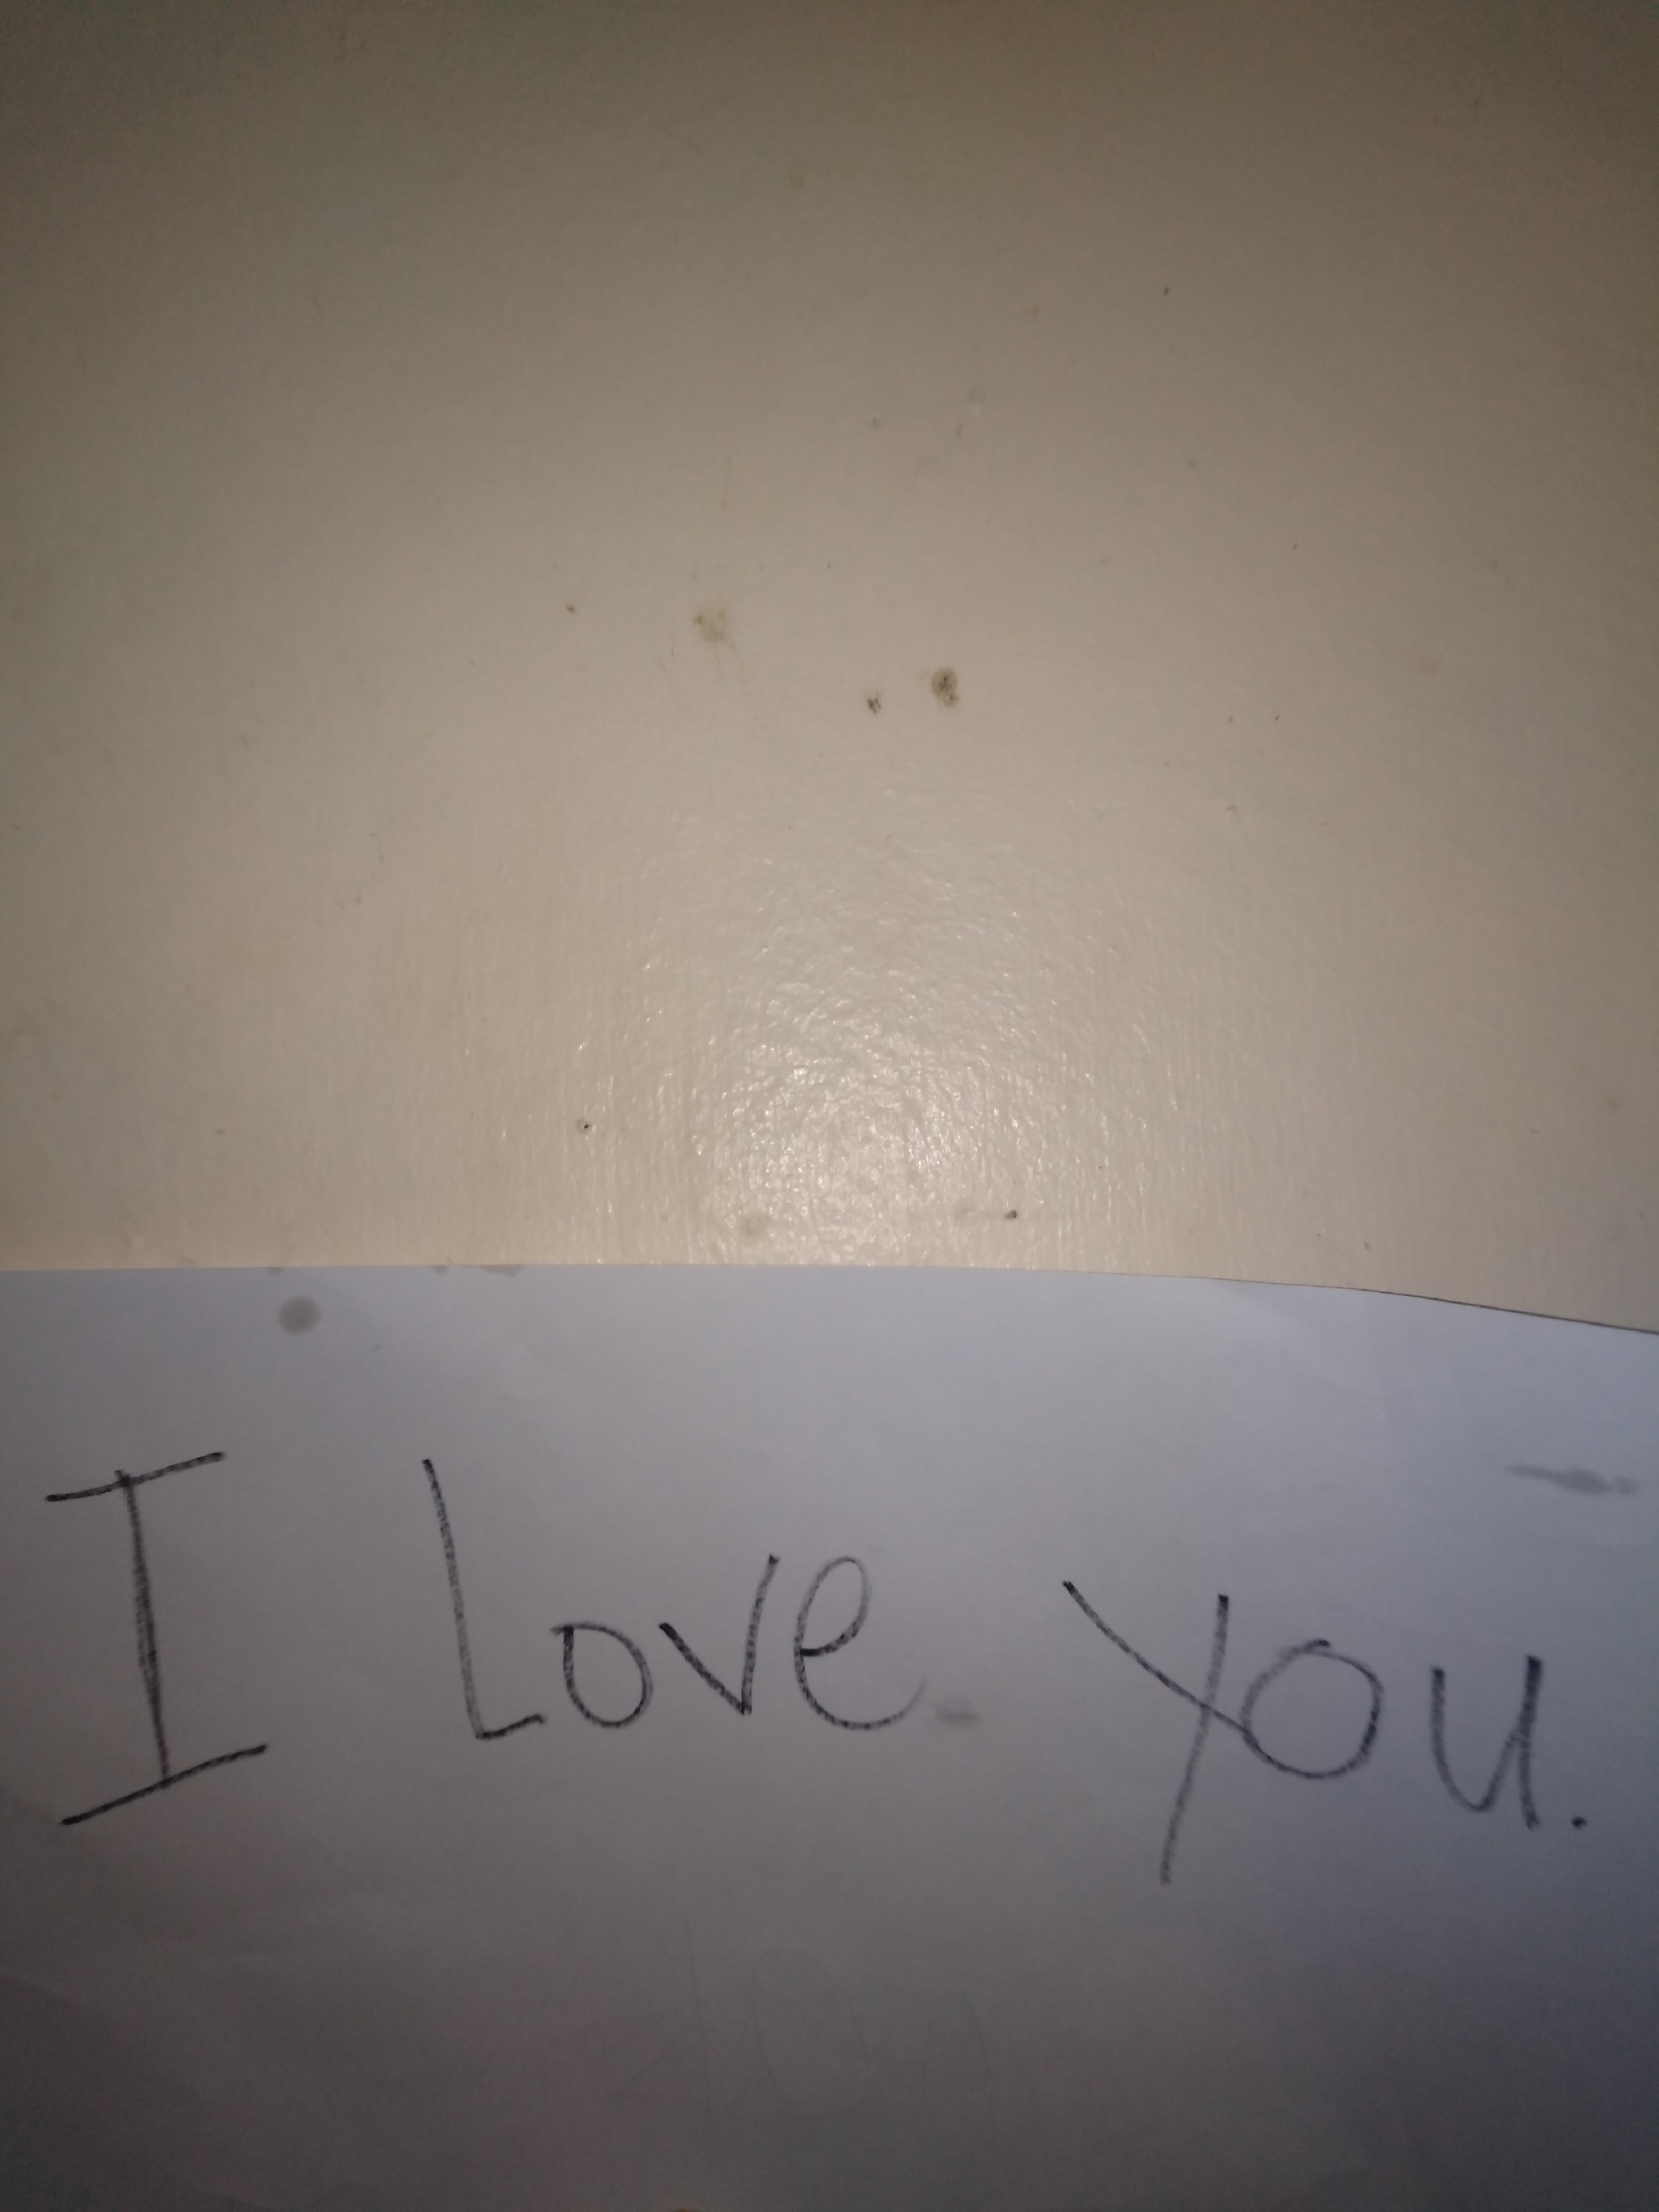 I Love you.